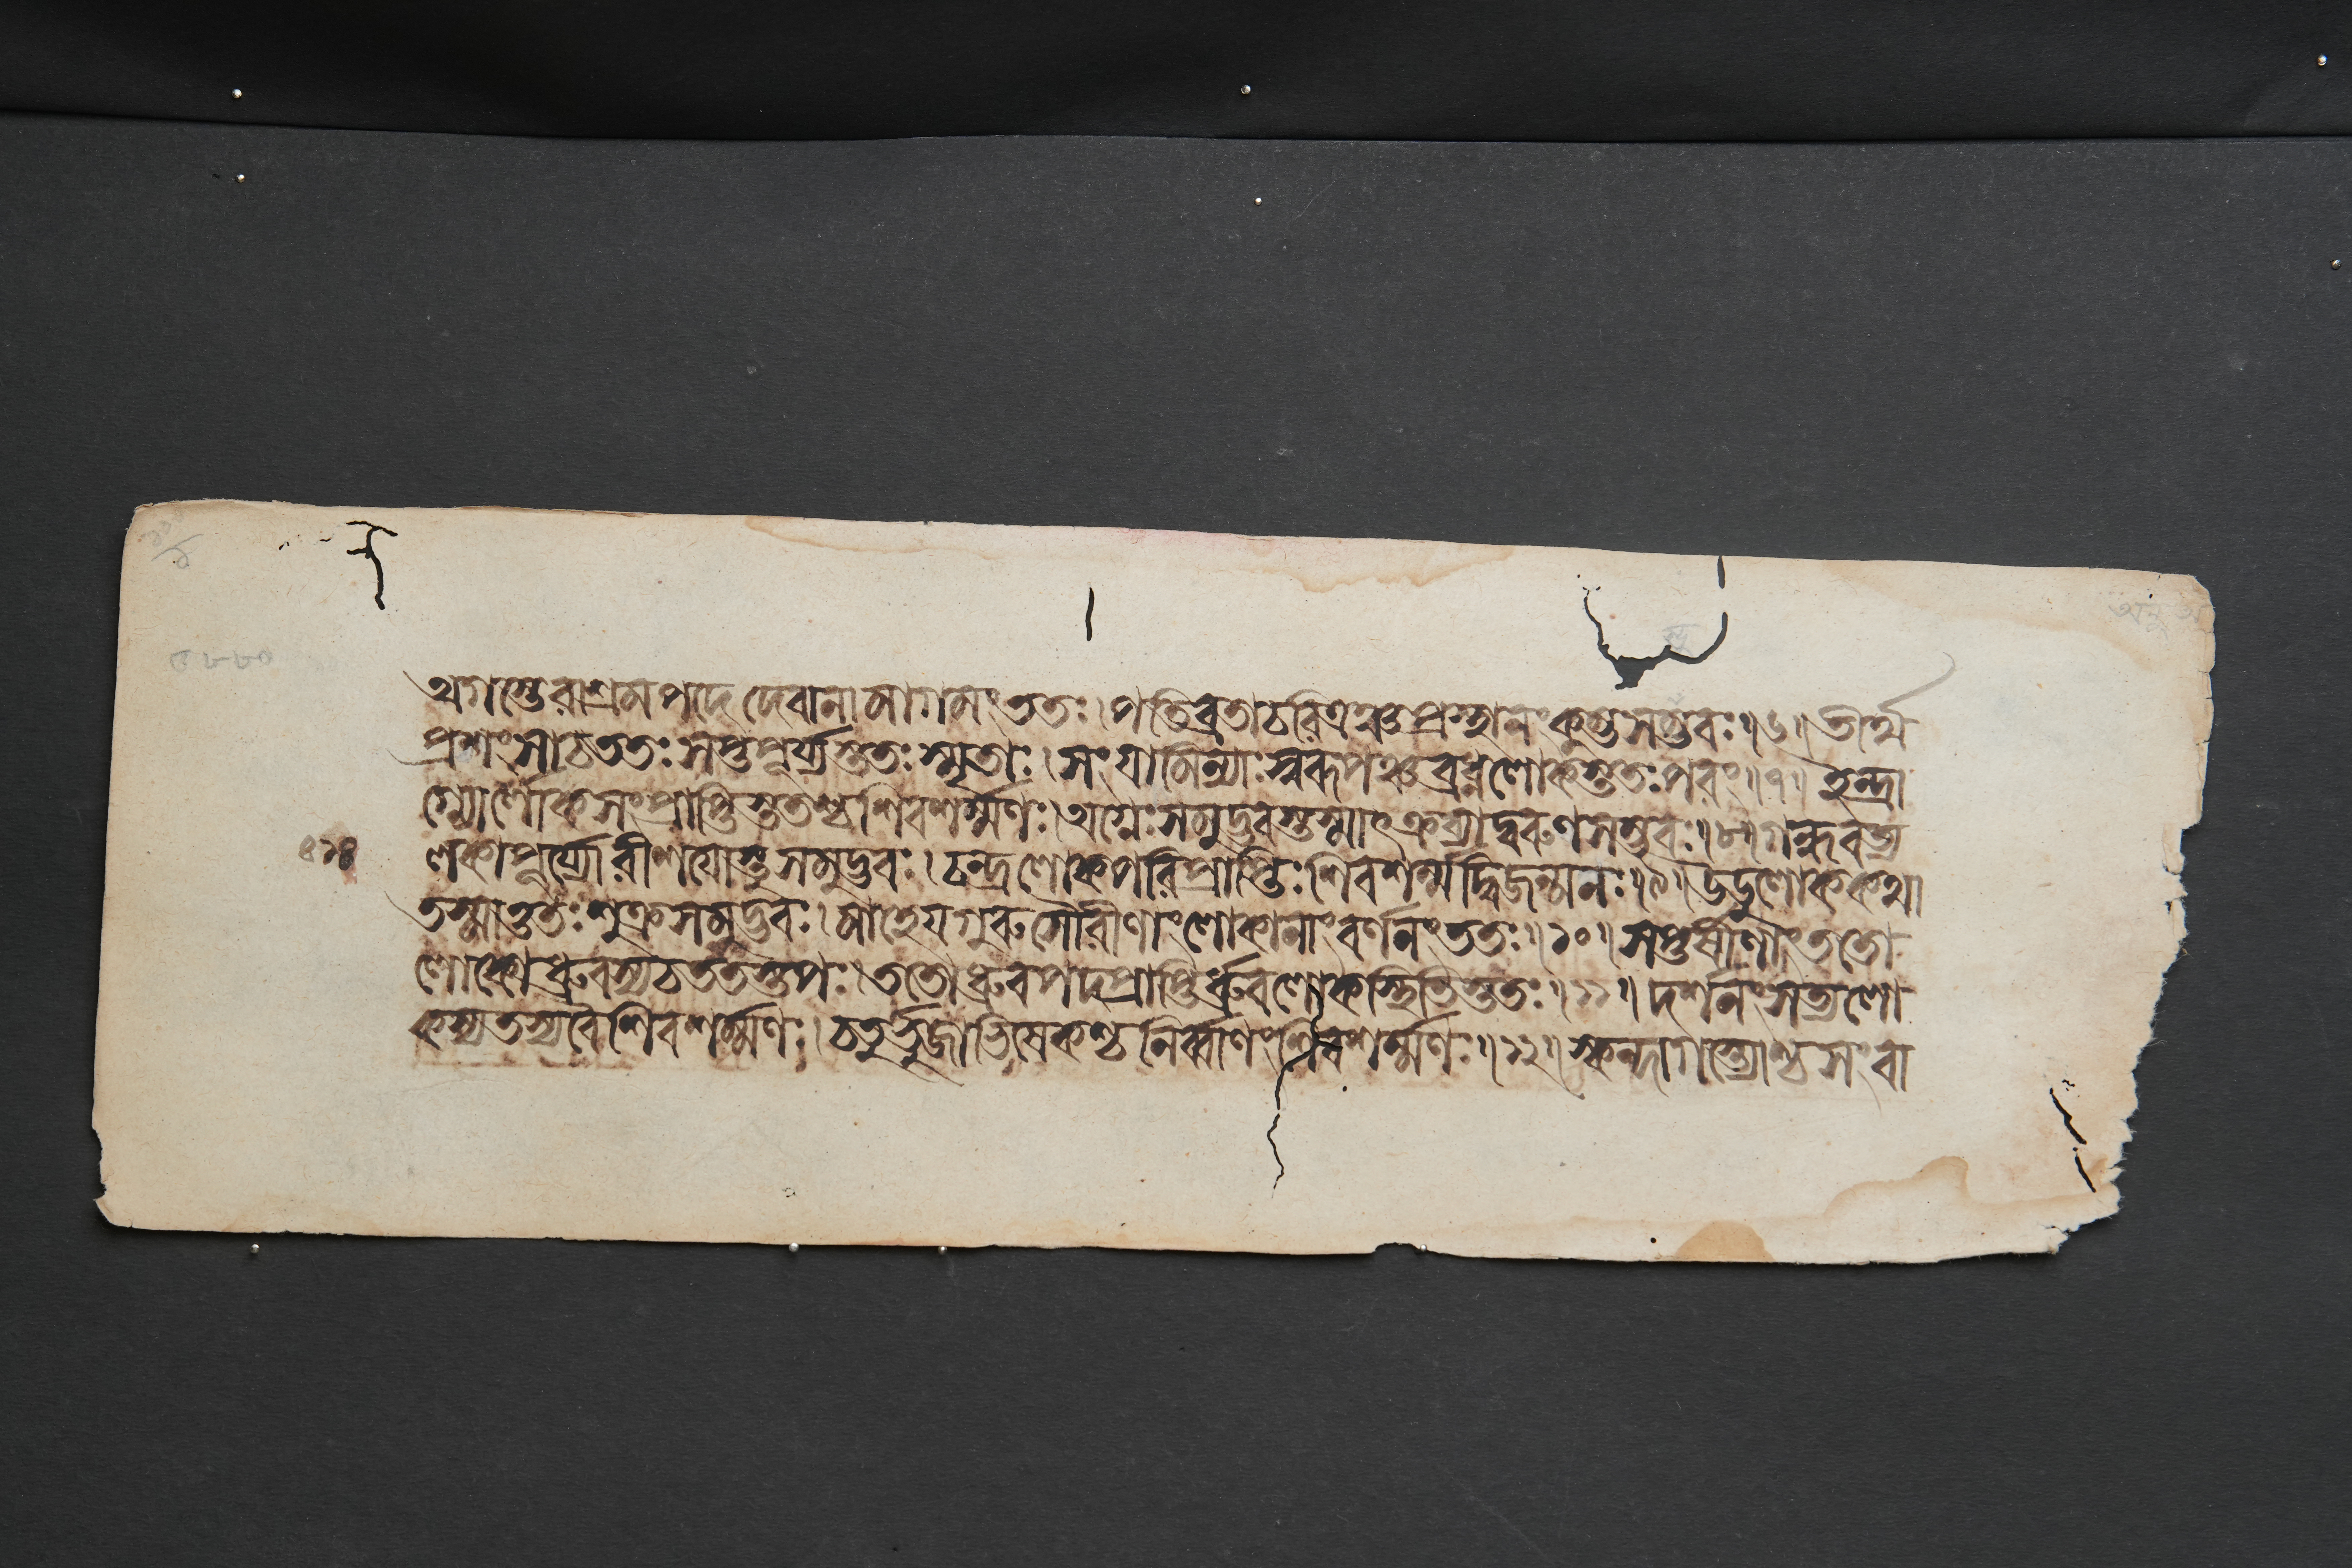 অগস্তেরাশ্রমপদে দেবানামাগমং ততঃ। পতিব্রতাচরিত্রঞ্চ প্রস্থানং কুম্ভসম্ভবঃ॥৬॥ তীর্থ
প্রশংসাচ ততঃ সপ্তপূর্য্যস্ততঃ স্মৃতাঃ। সংযামিন্যাঃ স্বরূপঞ্চ ব্রধ্নলোকস্ততঃ পরং॥৭॥ ইন্দ্রা
গ্ন্যোর্লোকসংপ্রাপ্তিস্ততশ্চ শিবশর্ম্মণঃ। অগ্নেঃ সমুদ্ভবস্তস্মাৎ ক্রব্যাদ্বরুণসম্ভবঃ॥৮॥ গন্ধবত্য
৪১৪
লকাপূর্য্যোরীশয়োস্তু সমুদ্ভবঃ। চন্দ্রলোকপরিপ্রাপ্তিঃ শিবশর্ম্মদ্বিজন্মনঃ॥৯॥ উডুলোককথা
তস্মাত্ততঃ শুক্রসমুদ্ভবঃ। মাহেয়গুরুসৌরীণাং লোকানাং বর্ণনং ততঃ॥১০॥ সপ্তর্ষীণাং ততো
লোকো ধ্রুবস্য চ ততস্তপঃ। ততো ধ্রুবপদপ্রাপ্তির্ধ্রুবলোকস্থিতিস্ততঃ॥১১॥ দর্শনং সত্যলো
কস্য তস্য বৈ শিবশর্ম্মণঃ। চতুর্ভুজাভিষেকশ্চ নির্ব্বাণং শিবশর্ম্মণঃ॥১২॥ স্কন্দাগস্ত্যোশ্চ সংবা